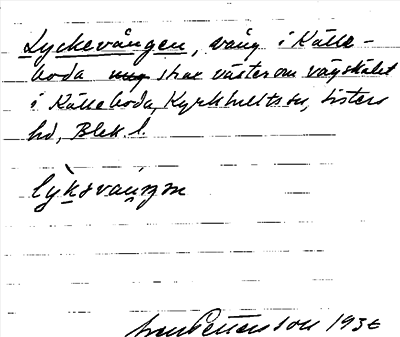 Lyckevången, vång i Kålle-
boda strax väster om vägskälet
i Kålleboda, Kyrkhults sn, Listers
hd, Blek. l.
Pettersson 1936